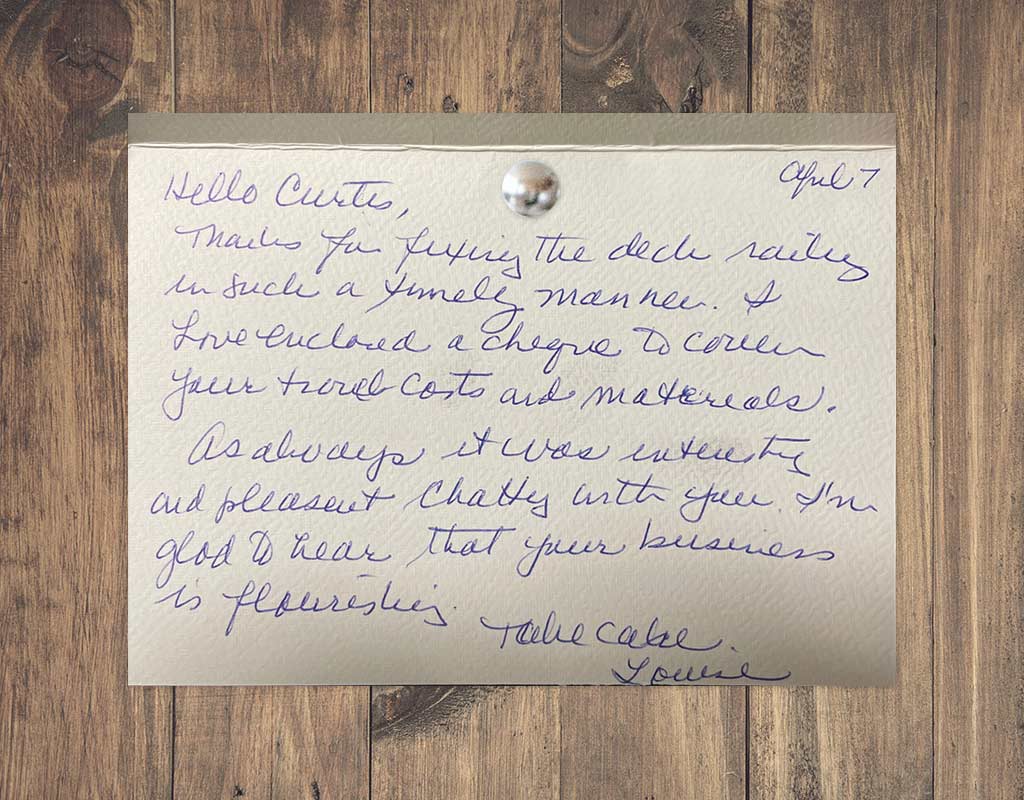 April 7
Hello Curtis,
Thanks for fixing the deck railing
in such a timely manner. I
have enclosed a cheque to cover
your travel costs and materials.
As always it was interesting
and pleasant chatting with you. I'm
glad to hear that your business
is flourishing.
Take care.
Louise